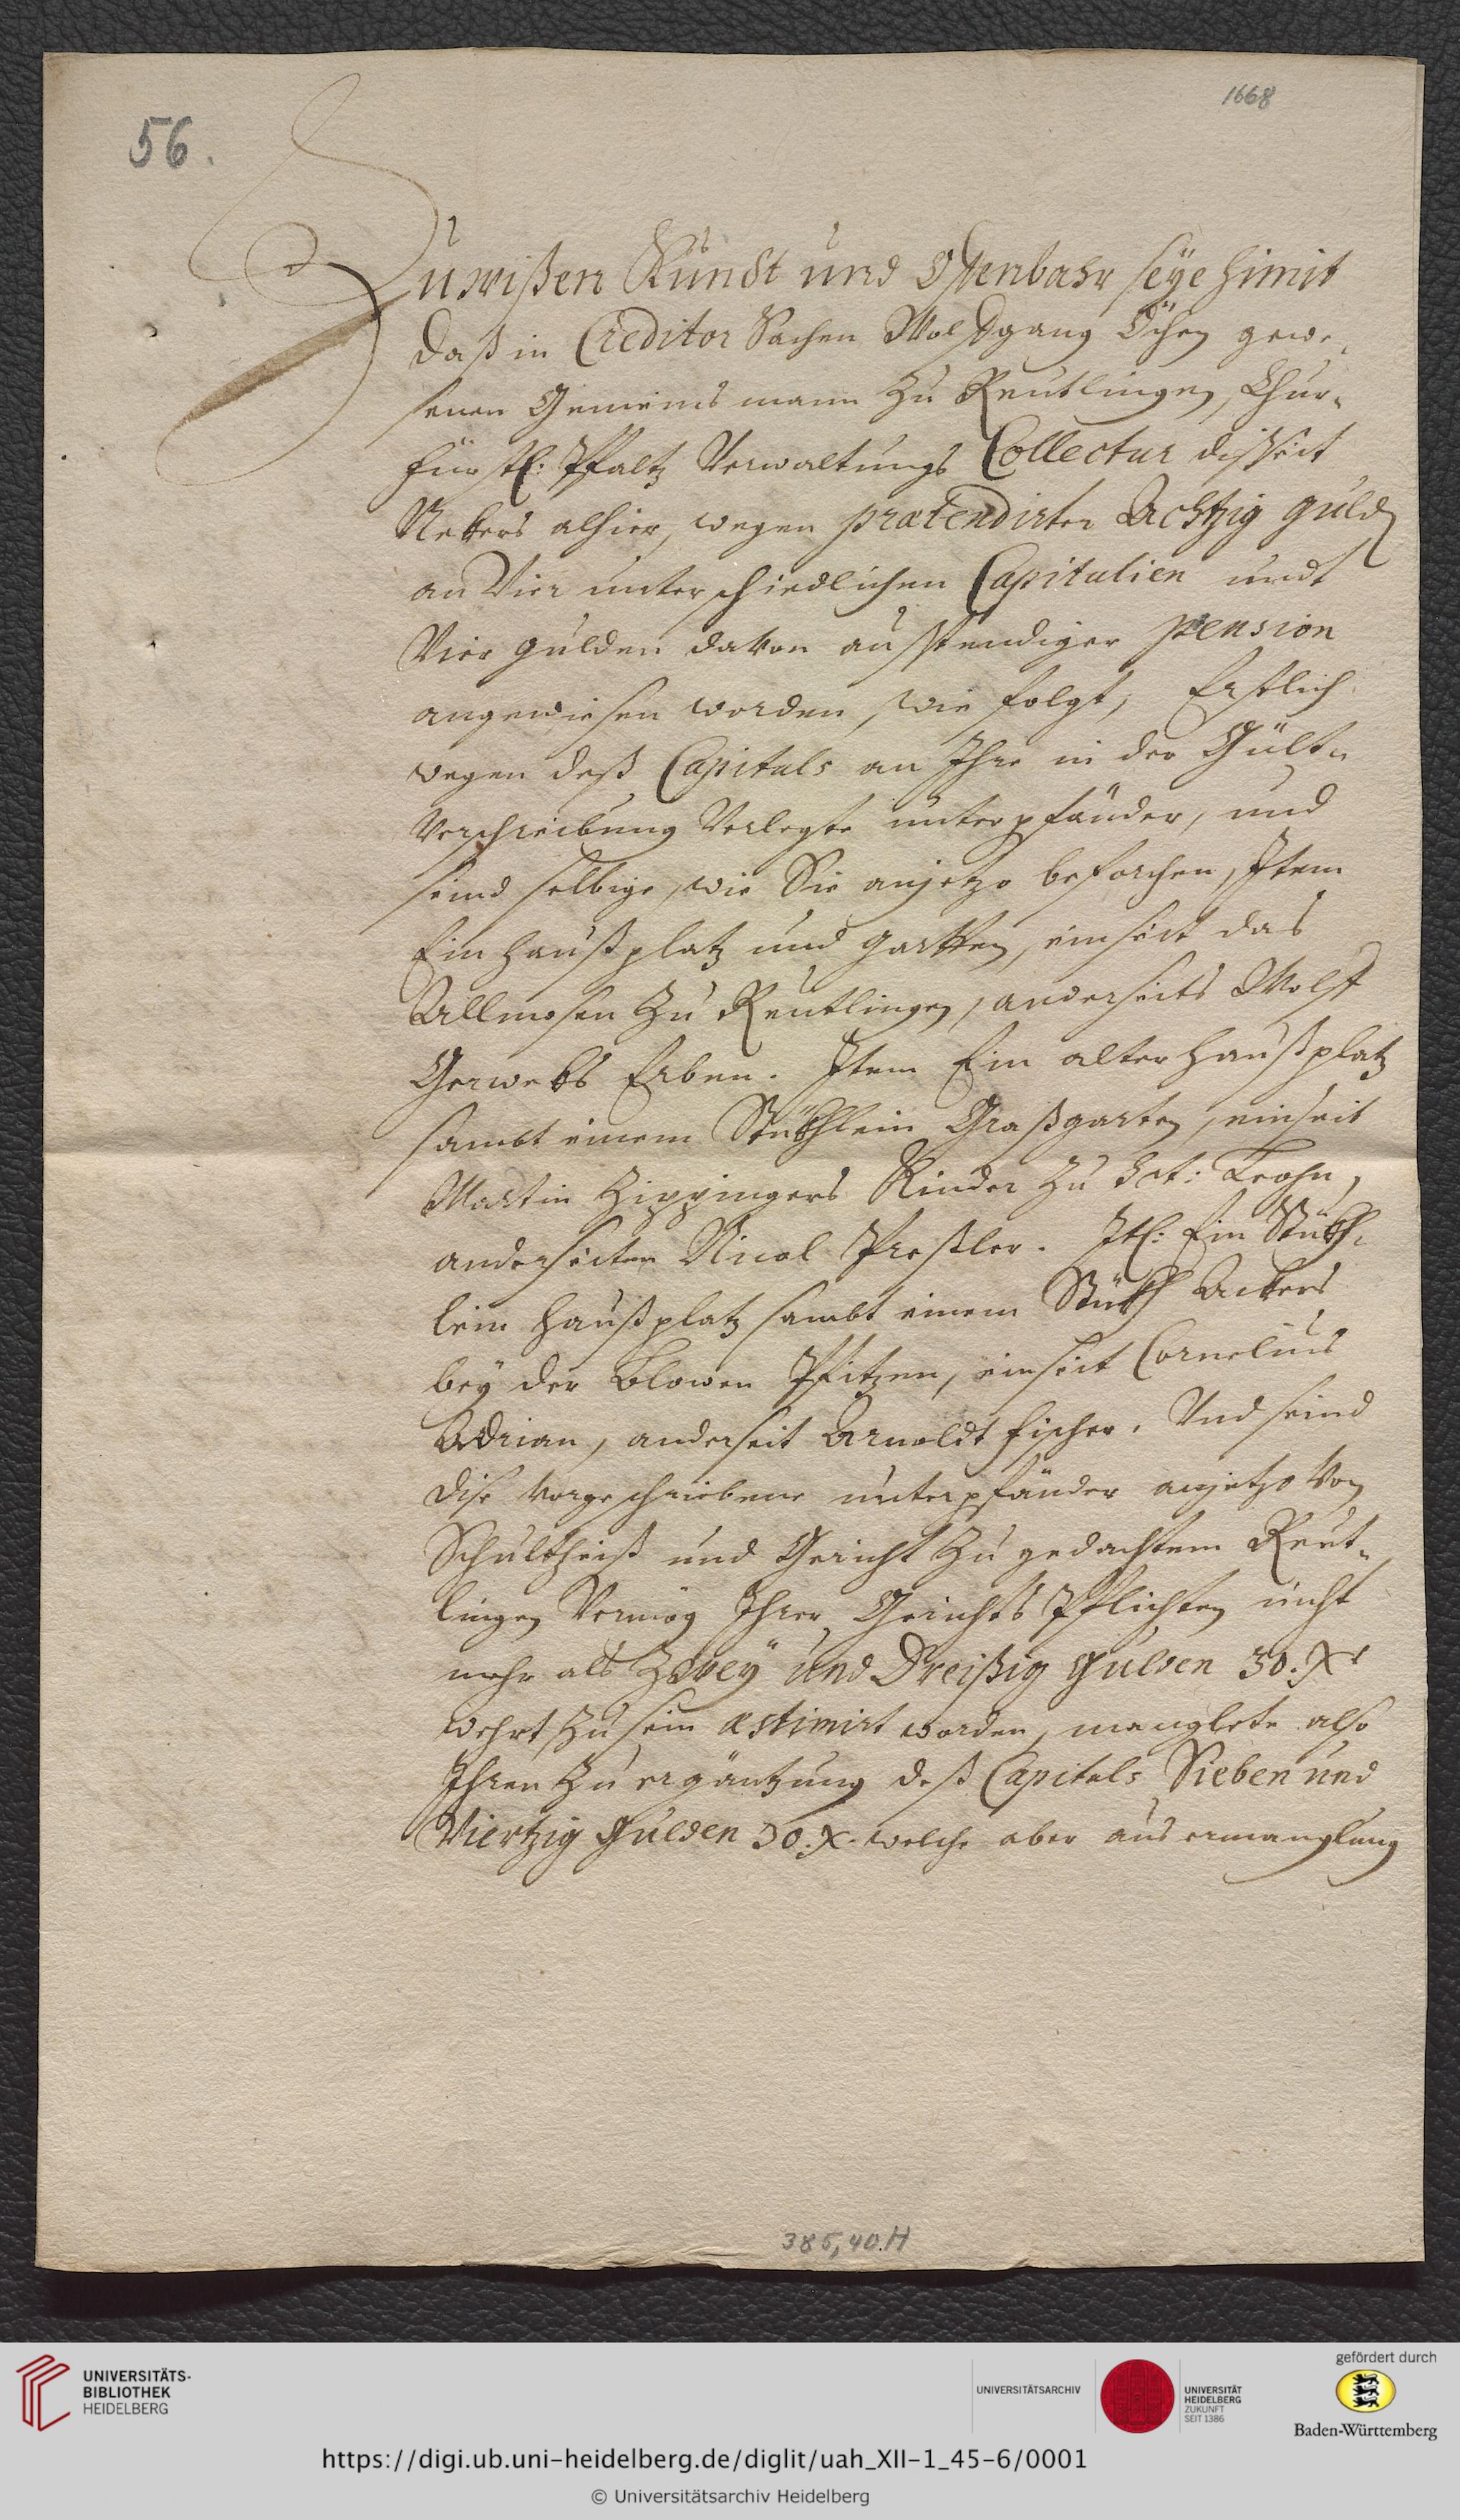 1668
56.
Zu wißen Kundt und Offenbahr seye himit
daß in Creditor Sachen Wolfgang Öchen gewe„
senen Gemeins mann zu Reutlingen, Chur„
fürstl: Pfaltz Verwaltungs Collectur disseit
Nekers alhier, wegen prætendirter Achtzig guld
an Vier unterschiedlichen Capitalien undt
Vier gulden davon ausstendiger pension
angewiesen worden, wie folgt, Erstlich
wegen deß Capitals an Ihre in der Gült„
Verschreibung Verlegte unterpfänder, und
seind selbige, wie Sie anjetzo beforchen, Item
Ein haußplatz und gartten, einseit das
Allmosen zu Reutlingen, anderseits Wolff
Gerweks Erben. Item Ein alter haußplatz
sambt einem Stükhlein Graßgarten, einseit
Martin Zippingers Kinder zu Sct: Leohn,
anderseiten Nicol Preßler. Itl: Ein Stükh„
lein haußplatz sambt einem Stükh Ackers
bey der Blowen Pfitzen, einseit Cornelius
Adrian, anderseit Arnoldt Fischer. Und seind
dise vorgeschriebene unterpfänder anjetzo Von
Schultheiß und Gericht zu gedachtem Reut„
lingen Vermög Ihrer Gerichts Pflichten nicht
mehr als Zwey und Dreißig Gulden 30. Xr
wehrt zu sein æstimirt worden, manglete also
Ihren zu ergäntzung deß Capitals Sieben und
Viertzig Gulden 30. X. welche aber aus ermanglung
385,40.H
UNIVERSITÄTS-
BIBLIOTHEK
HEIDELBERG
UNIVERSITÄTSARCHIV
UNIVERSITÄT
HEIDELBERG
ZUKUNFT
SEIT 1386
gefördert durch
Baden-Württemberg
https://digi.ub.uni-heidelberg.de/diglit/uah_XII-1_45-6/0001
© Universitätsarchiv Heidelberg